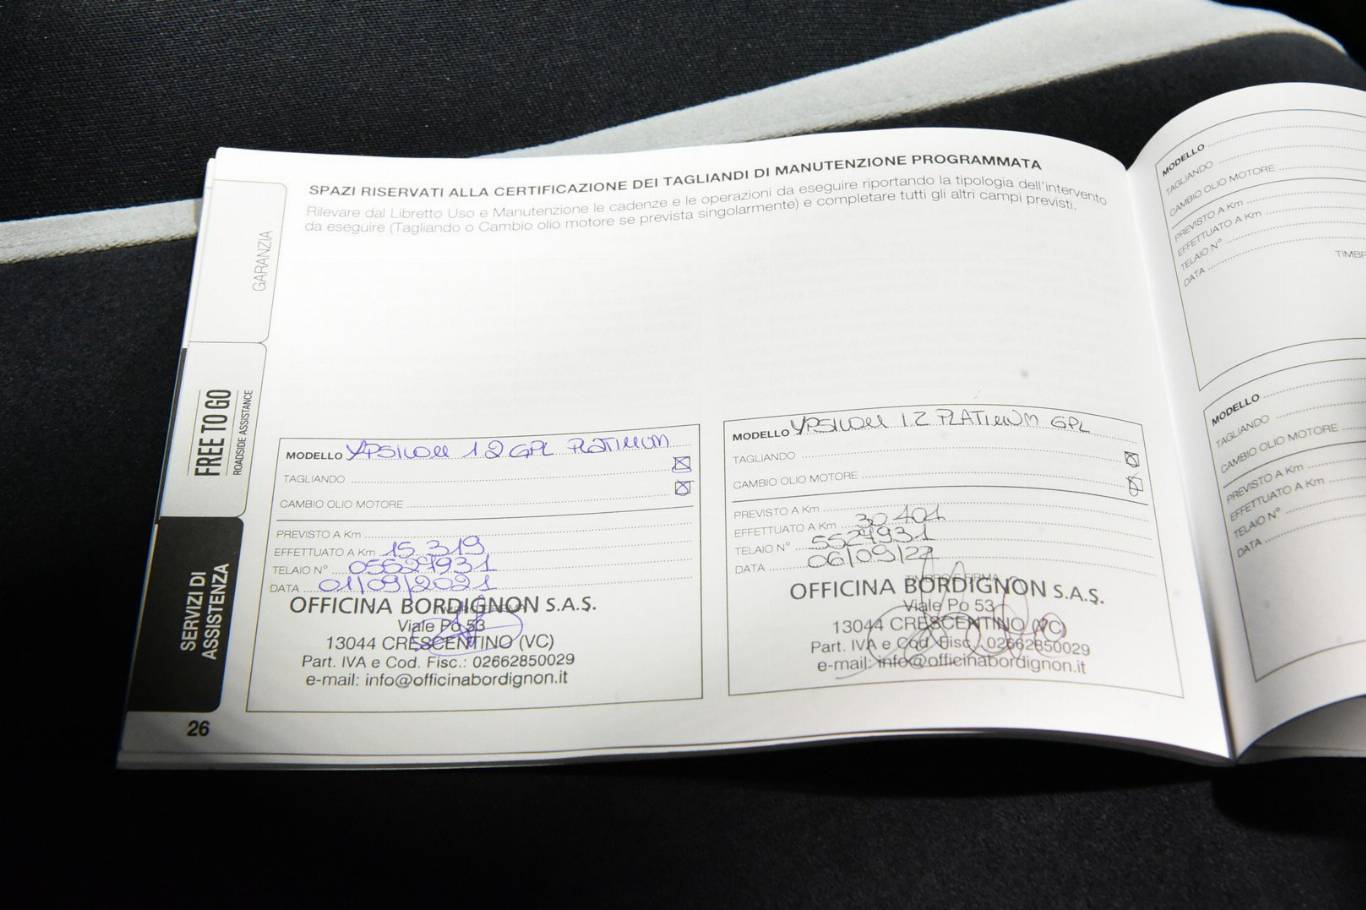 SPAZI RISERVATI ALLA CERTIFICAZIONE DEI TAGLIANDI DI MANUTENZIONE PROGRAMMATA
Rilevare dal Libretto Uso e Manutenzione le cadenze e le operazioni da eseguire riportando la tipologia dell'intervento
da eseguire (Tagliando o Cambio olio motore se prevista singolarmente) e completare tutti gli altri campi previsti.
GARANZIA
FREE TO GO
ROADSIDE ASSISTANCE
SERVIZI DI
ASSISTENZA
26
MODELLO YPSILON 1.2 GPL PLATINUM
TAGLIANDO
CAMBIO OLIO MOTORE
PREVISTO A Km
EFFETTUATO A Km 15.319
TELAIO N° 05627931
DATA 01/09/2021
OFFICINA BORDIGNON S.A.S.
Viale Po 53
13044 CRESCENTINO (VC)
Part. IVA e Cod. Fisc.: 02662850029
e-mail: info@officinabordignon.it
MODELLO YPSILON 1.2 PLATINUM GPL
TAGLIANDO
CAMBIO OLIO MOTORE
PREVISTO A Km
EFFETTUATO A Km 30.401
TELAIO N° 5527931
DATA 06/09/22
OFFICINA BORDIGNON S.A.S.
Viale Po 53
13044 CRESCENTINO (VC)
Part. IVA e Cod. Fisc.: 02662850029
e-mail: info@officinabordignon.it
MODELLO
TAGLIANDO
CAMBIO OLIO MOTORE
PREVISTO A Km
EFFETTUATO A Km
TELAIO N°
DATA
MODELLO
TAGLIANDO
CAMBIO OLIO MOTORE
PREVISTO A Km
EFFETTUATO A Km
TELAIO N°
DATA